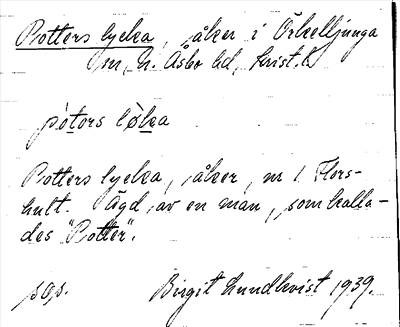 Potters lycka, åker i Örkelljunga
sn, N. Åsbo hd, Krist. l.
pòtors lỳka
Potters lycka, åker, m 1 Flers-
hult. Ägd av en man, som kalla-
des "Potter".
sep.
Birgit Lundkvist 1939.